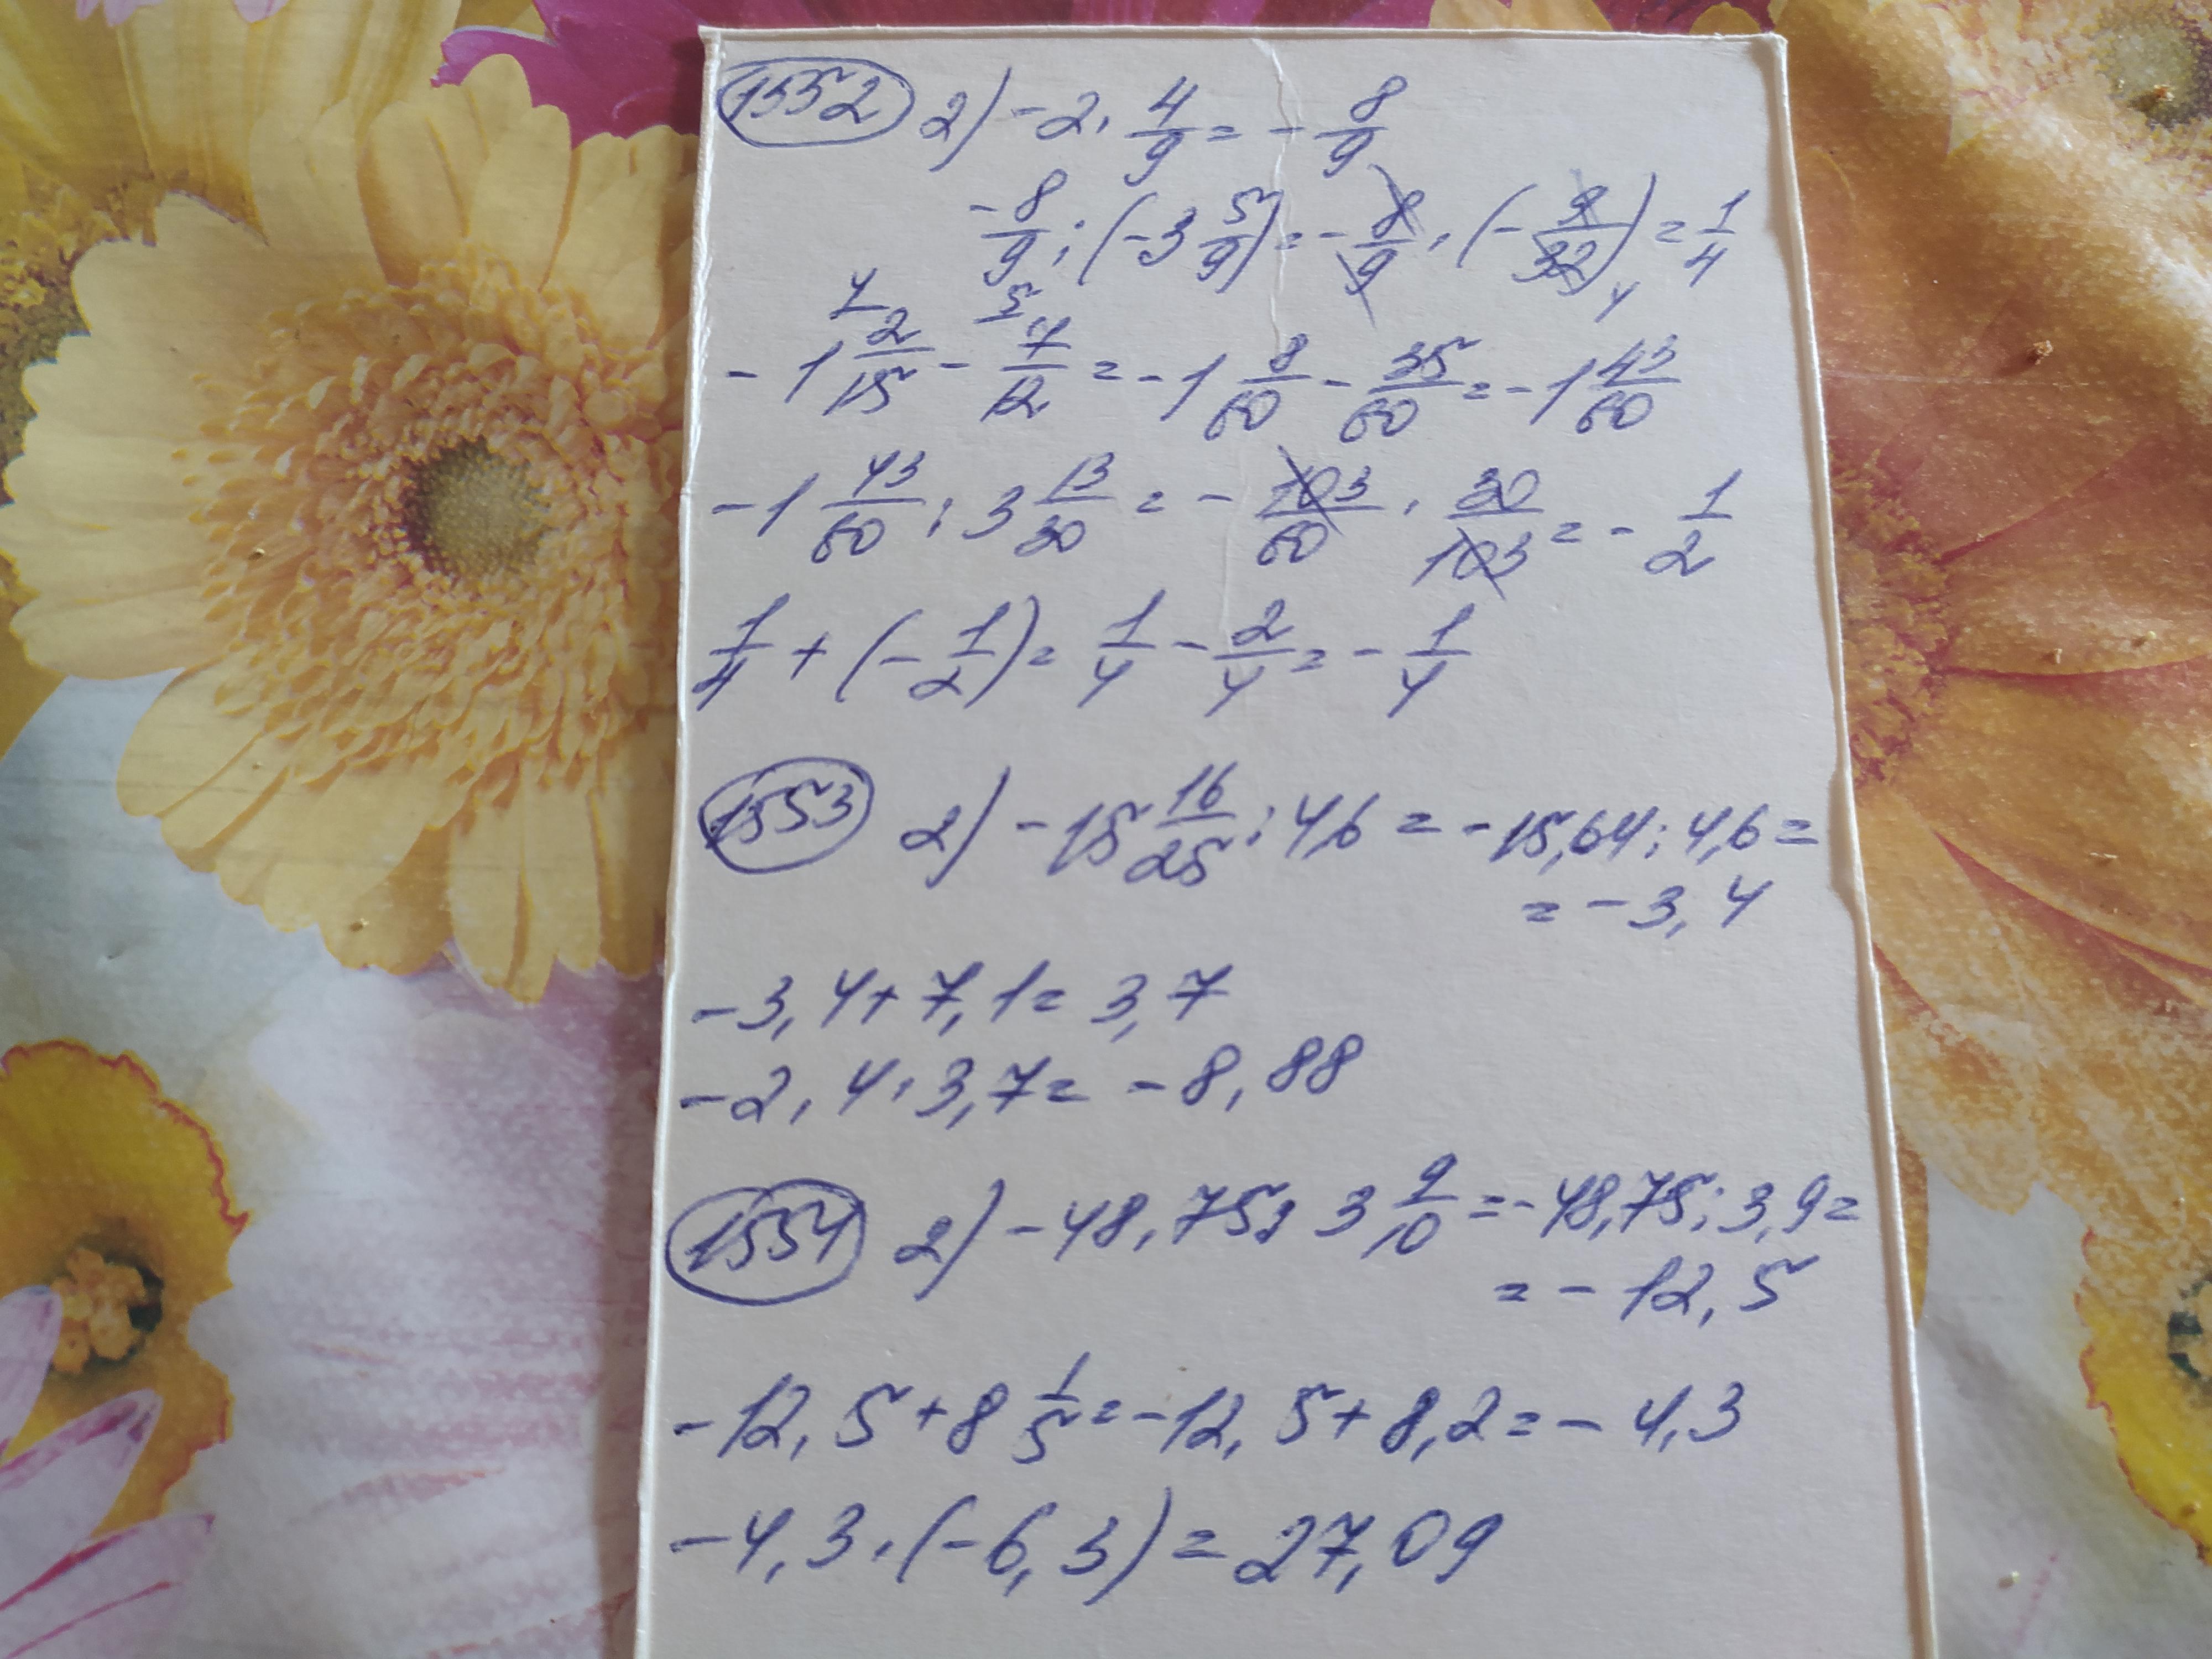 1552 2) -2 · 4/9 = - 8/9
- 8/9 : (-3 5/9) = - 8/9 · (- 9/32) = 1/4
4 5
-1 2/15 - 7/12 = -1 8/60 - 35/60 = -1 43/60
-1 43/60 : 3 13/30 = - 103/60 · 30/103 = - 1/2
1/4 + (- 1/2) = 1/4 - 2/4 = - 1/4
1553 2) -15 16/25 : 4,6 = -15,64 : 4,6 =
= -3,4
-3,4 + 7,1 = 3,7
-2,4 · 3,7 = -8,88
1554 2) -48,75 : 3 9/10 = -48,75 : 3,9 =
= -12,5
-12,5 + 8 1/5 = -12,5 + 8,2 = -4,3
-4,3 · (-6,3) = 27,09